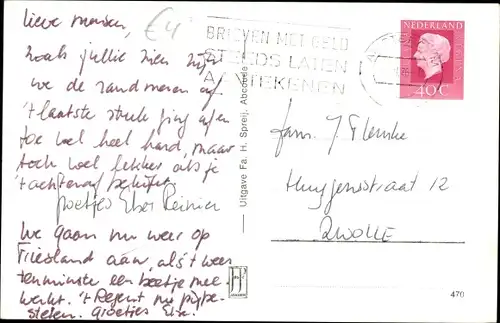 Lieve mensen,
zoals jullie zien zijn
we de randmeren af
't laatste stuk ging af en
toe wel heel hard, maar
toch wel lekker als je
't achteraf bekijkt.
Groetjes Reinier
We gaan nu weer op
Friesland aan, als 't weer
tenminste een beetje mee
werkt. 't Regent nu pijpe-
stelen. Groetjes
€4
BRIEVEN MET GELD
STEEDS LATEN
AANTEKENEN
NEDERLAND
40C
Uitgave Fa. H. Spreij, Abcoude
fam. J Flemke
Huygensstraat 12
ZWOLLE
470